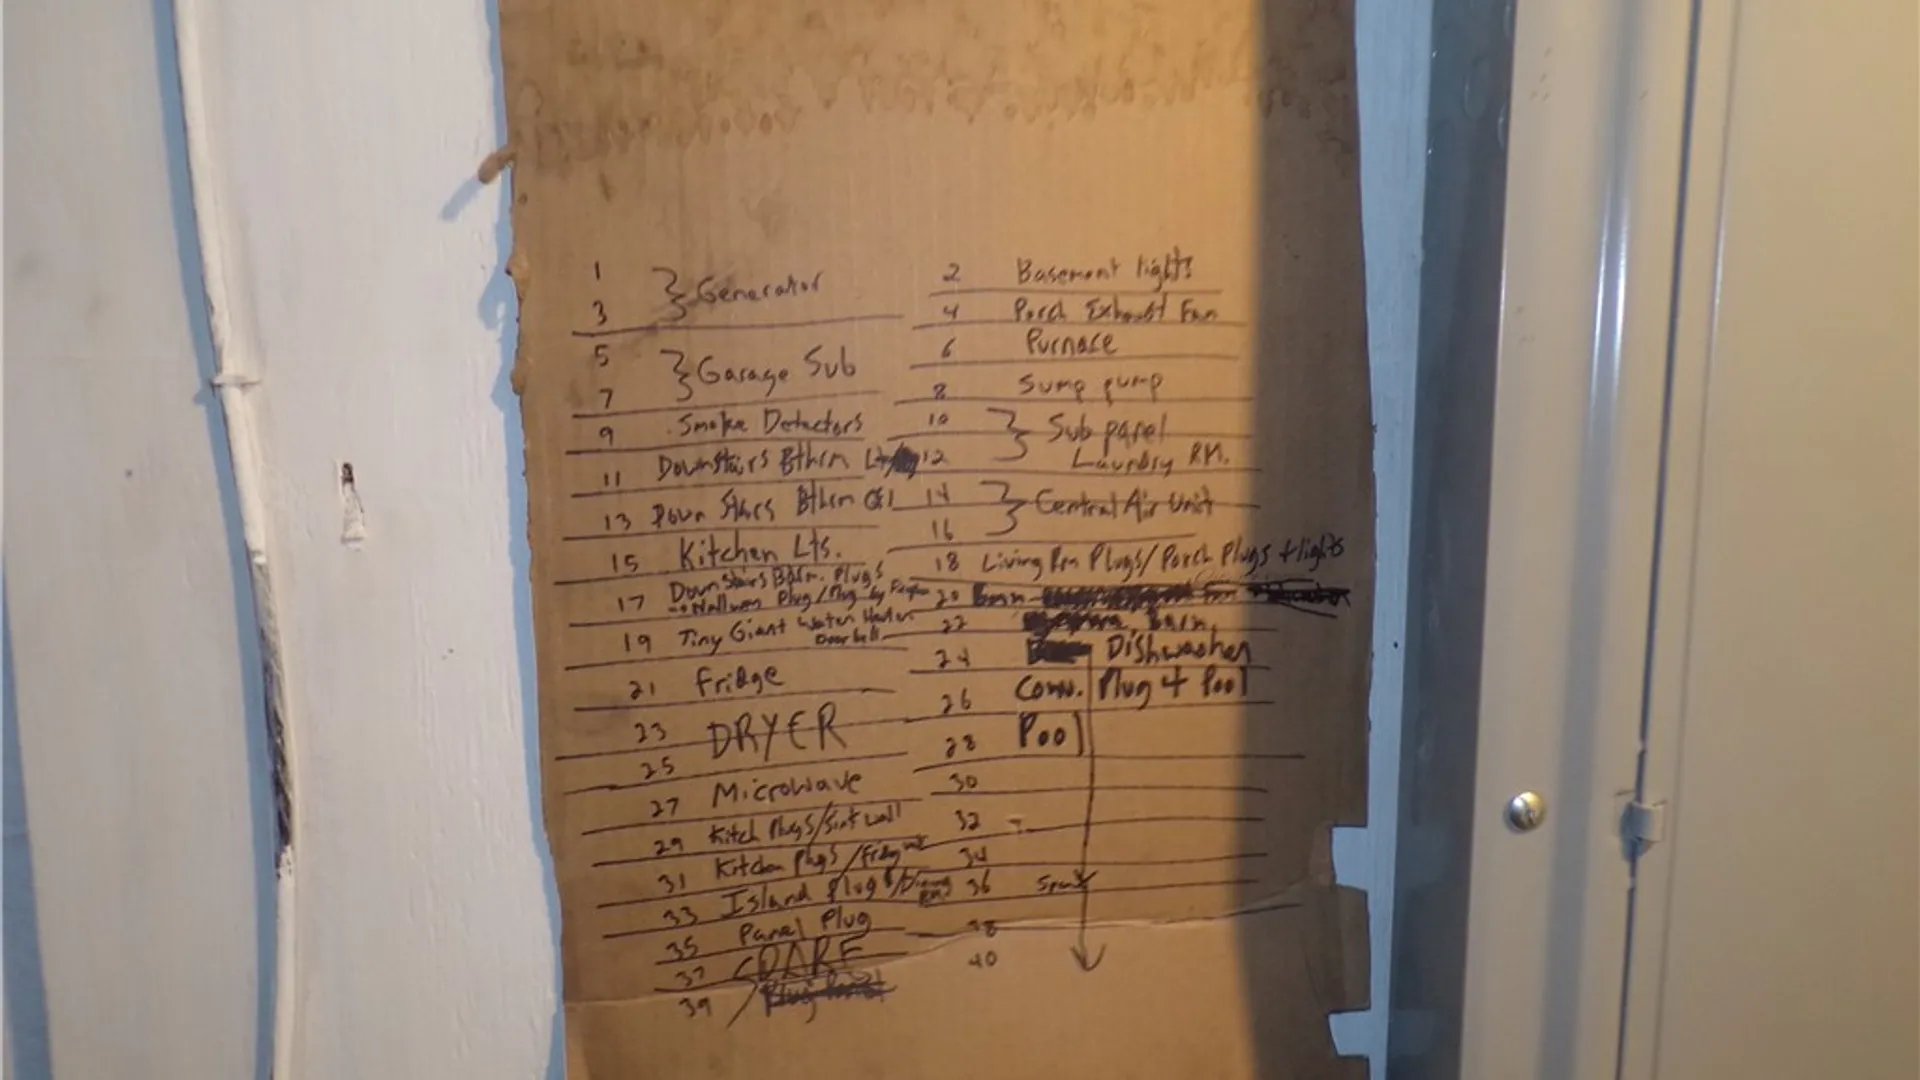 1
3 } Generator
5
7 } Garage Sub
9 Smoke Detectors
11 Downstairs Bthrm
13 Down Stars Bthrm
15 Kitchen Lts.
17 Downstairs Plugs
Plug/Plug by
19 Tiny Giant Water
Doorbell
21 Fridge
23 DRYER
25
27 Microwave
29 Kitch Plugs/Sink wall
31 Kitchen Plugs/Fridg
33 Island Plug/Dining Rm
35 Panel Plug
37 SPARE
39
2 Basement lights
4 Porch Exhaust Fan
6 Furnace
8 Sump pump
10 } Sub panel
12 Laundry RM.
14 } Central Air Unit
16
18 Living Rm Plugs/Porch Plugs + lights
20
22 Barn
24 Dishwasher
26 Conv. Plug + Pool
28 Pool
30
32
34
36
38
40